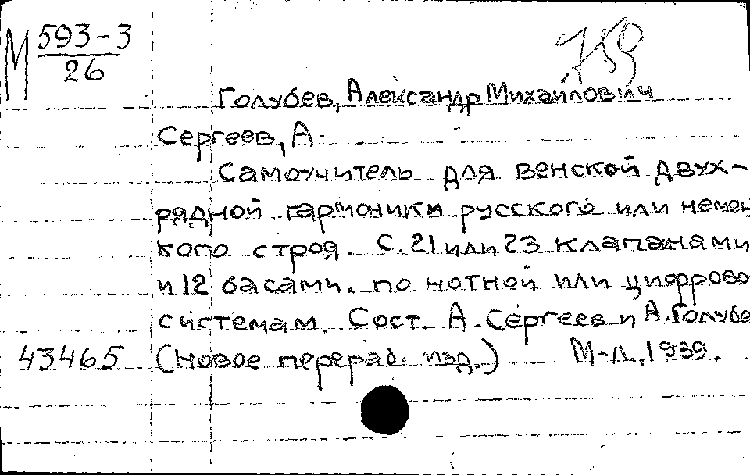 М 593-3
26
759
Голубев, Александр Михайлович
Сергеев, А.
Самоучитель для венской двух-
рядной гармоники русского или немец
кого строя. С. 21 или 23 клапанами
и 12 басами. по нотной или цифрово
системам. Сост. А. Сергеев и А. Голубе
43465 (Новое перераб. изд.) М-Л., 1939.